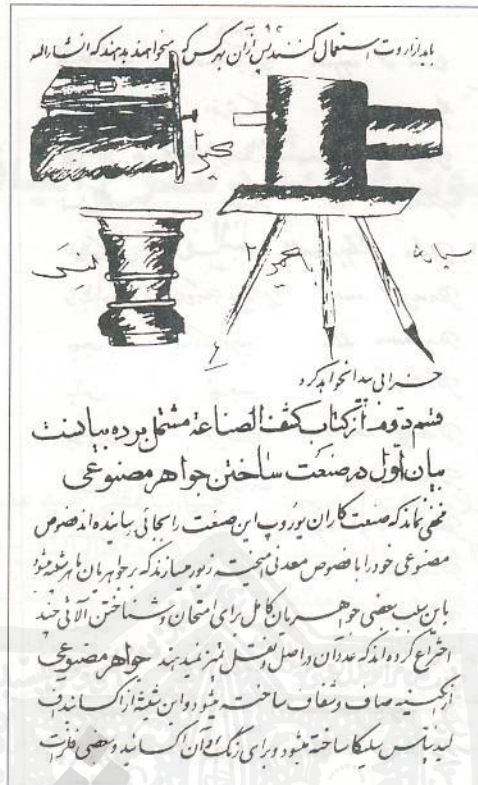 باید از اروت استعمال کنند پس از آن بهر کس که میخواهند بدهند که انشاء الله
کمیرا
لنس
کمیرا
خرابی پیدا نخواهد کرد
قسم دوم از کتاب کشف الصناعة مشتمل بر ده بیانست
بیان اول در صنعت ساختن جواهر مصنوعی
مخفی نماند که صنعت کاران یوروپ این صنعت را بجائی رسانیده اند فصوص
مصنوعی خود را با فصوص معدنی آمیخته زیور میسازند که بر جواهریان ماهر مشتبه میشود
باین سبب بعضی جواهریان کامل برای امتحان و شناختن آلاتی چند
اختراع کرده اند که در آن اصل و نقل تمیز میدهند جواهر مصنوعی
از آبگینه صاف و شفاف ساخته میشود و این شیشه از اکساند اف
لید پتاس سلیکا ساخته میشود و برای رنگ آن اکساید و بعضی فلزات